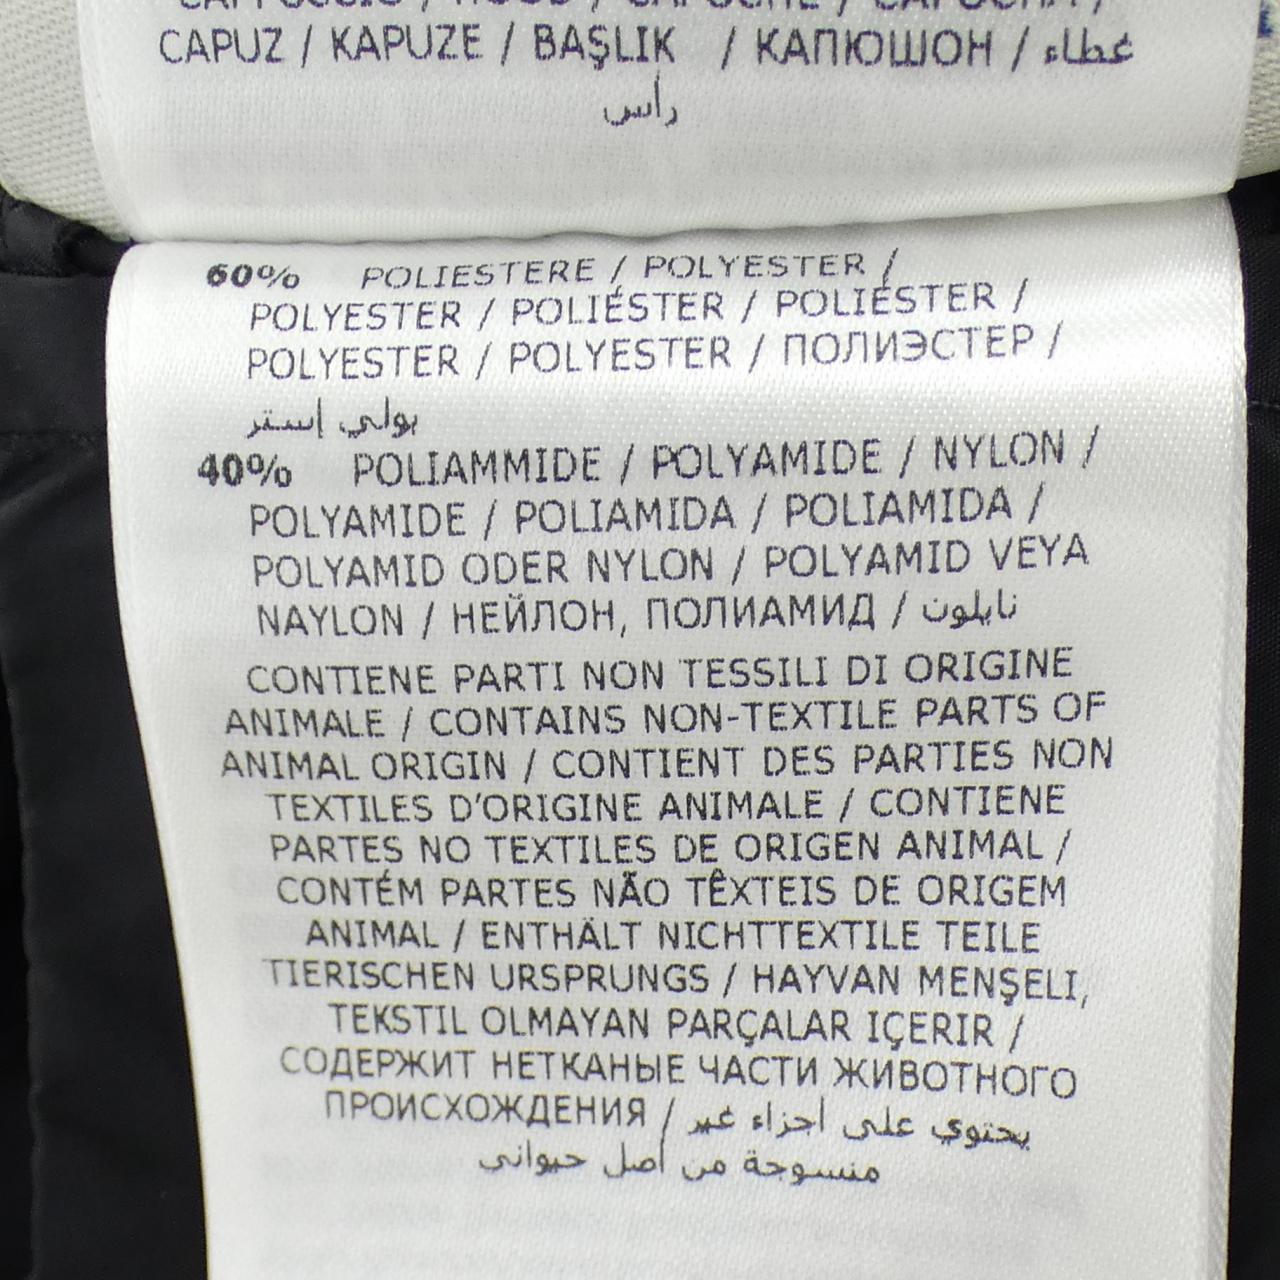 CAPPUCCIO / HOOD / CAPUCHE / CAPUCHA /
CAPUZ / KAPUZE / BAŞLIK / КАПЮШОН / غطاء
رأس
60% POLIESTERE / POLYESTER /
POLYESTER / POLIÉSTER / POLIÉSTER /
POLYESTER / POLYESTER / ПОЛИЭСТЕР /
بولي إستر
40% POLIAMMIDE / POLYAMIDE / NYLON /
POLYAMIDE / POLIAMIDA / POLIAMIDA /
POLYAMID ODER NYLON / POLYAMID VEYA
NAYLON / НЕЙЛОН, ПОЛИАМИД / نايلون
CONTIENE PARTI NON TESSILI DI ORIGINE
ANIMALE / CONTAINS NON-TEXTILE PARTS OF
ANIMAL ORIGIN / CONTIENT DES PARTIES NON
TEXTILES D'ORIGINE ANIMALE / CONTIENE
PARTES NO TEXTILES DE ORIGEN ANIMAL /
CONTÉM PARTES NÃO TÊXTEIS DE ORIGEM
ANIMAL / ENTHÄLT NICHTTEXTILE TEILE
TIERISCHEN URSPRUNGS / HAYVAN MENŞELI,
TEKSTIL OLMAYAN PARÇALAR IÇERIR /
СОДЕРЖИТ НЕТКАНЫЕ ЧАСТИ ЖИВОТНОГО
ПРОИСХОЖДЕНИЯ / يحتوي على أجزاء غير
منسوجة من أصل حيواني